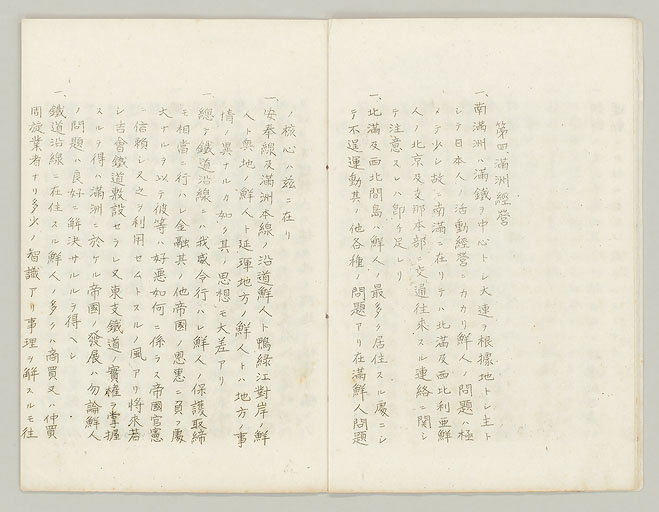 第四 滿洲經營
一、南滿洲ハ滿鐵ヲ中心トシ大連ヲ根據地トシ主ト
シテ日本人ノ活動經營ニカカリ鮮人ノ問題ハ極
メテ少シ故ニ南滿ニ在リテハ北滿及西比利亜鮮
人ノ北京及支那本部ニ交通往來スル連絡ニ関シ
テ注意スレハ即チ足レリ
一、北滿及西北間島ハ鮮人ノ最多ク居住スル處ニシ
テ不逞運動其ノ他各種ノ問題アリ在滿鮮人問題
ノ核心ハ茲ニ在リ
一、安奉線及滿洲本線ノ沿道鮮人ト鴨緑江對岸ノ鮮
人ト奥地ノ鮮人ト延琿地方ノ鮮人トハ地方ノ事
情ノ異ナルカ如ク其ノ思想モ大差アリ
一、總テ鐵道沿線ニハ我威令行ハレ鮮人ノ保護取締
モ相當ニ行ハレ金融其ノ他帝國ノ恩惠ニ負フ處
大ナルヲ以テ彼等ハ好悪如何ニ係ラス帝國官憲
ニ信頼シ又之ヲ利用セムトスルノ風アリ將來若
シ吉會鐵道敷設セラレ又東支鐵道ノ實權ヲ掌握
スルヲ得ハ滿洲ニ於ケル帝國ノ發展ハ勿論鮮人
ノ問題ハ良好ニ解決サルルヲ得ヘシ
一、鐵道沿線ニ在住スル鮮人ノ多クハ商買又ハ仲買
周旋業者ナリ多少ノ智識アリ事理ヲ解スルモ往